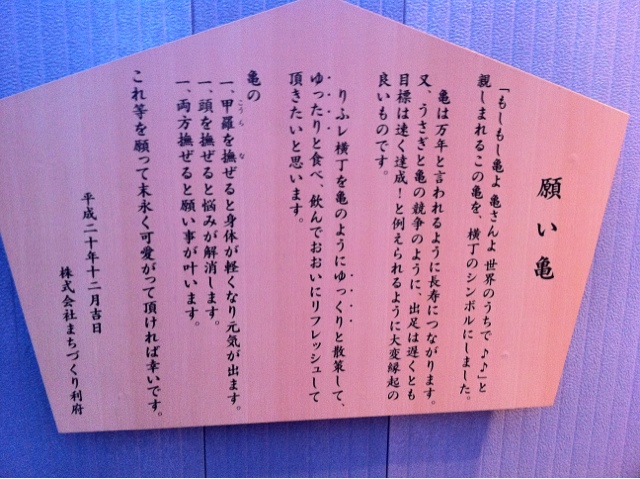 願い亀
「もしもし亀よ 亀さんよ 世界のうちで♪♪」と
親しまれるこの亀を、横丁のシンボルにしました。
亀は万年と言われるように長寿につながります。
又、うさぎと亀の競争のように、出足は遅くとも
目標は速く達成！と例えられるように大変縁起の
良いものです。
りふレ横丁を亀のようにゆっくりと散策して、
ゆったりと食べ、飲んでおおいにリフレッシュして
頂きたいと思います。
亀の
一、甲羅を撫ぜると身体が軽くなり元気が出ます。
こうら な
一、頭を撫ぜると悩みが解消します。
一、両方撫ぜると願い事が叶います。
これ等を願って末永く可愛がって頂ければ幸いです。
平成二十年十二月吉日
株式会社まちづくり利府